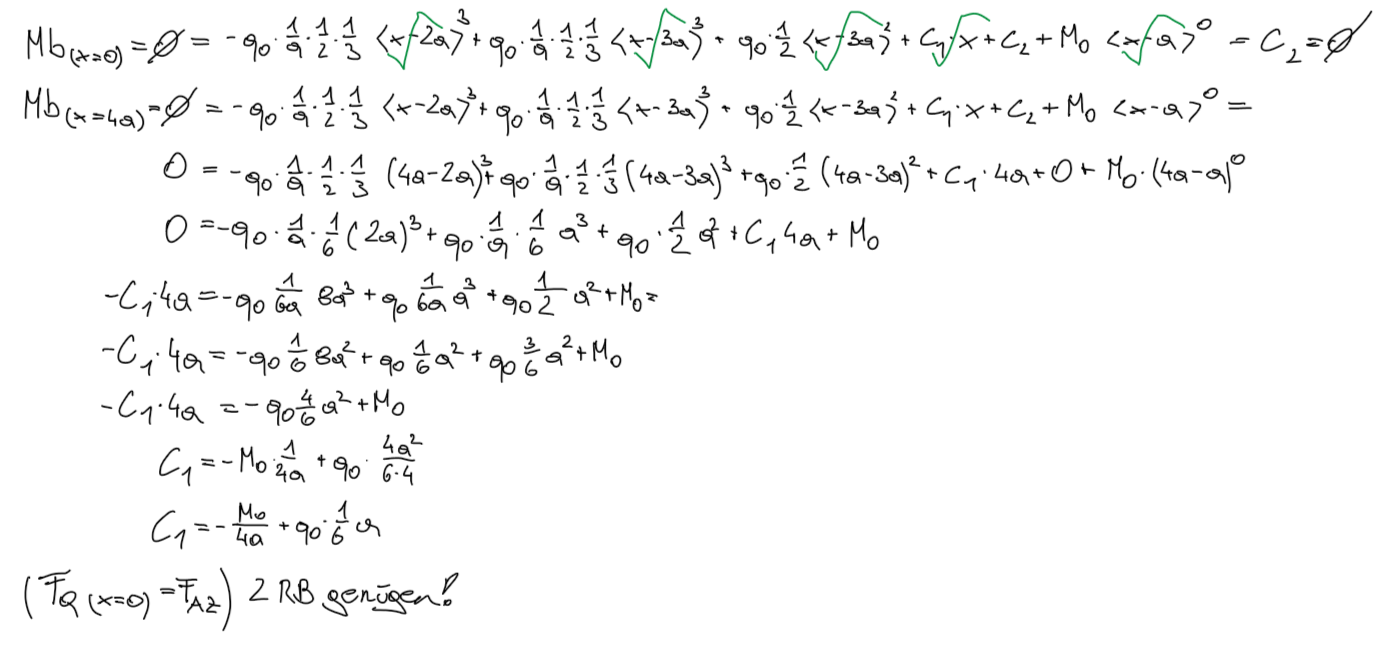 Mb(x=0) = 0̸ = -q₀ · 1/a · 1/2 · 1/3 <x-2a>³ + q₀ · 1/a · 1/2 · 1/3 <x-3a>³ + q₀ · 1/2 <x-3a>² + C₁·x + C₂ + M₀ <x-a>⁰ = C₂ = 0̸
Mb(x=4a) = 0̸ = -q₀ · 1/a · 1/2 · 1/3 <x-2a>³ + q₀ · 1/a · 1/2 · 1/3 <x-3a>³ + q₀ · 1/2 <x-3a>² + C₁·x + C₂ + M₀ <x-a>⁰ =
0 = -q₀ · 1/a · 1/2 · 1/3 (4a-2a)³ + q₀ · 1/a · 1/2 · 1/3 (4a-3a)³ + q₀ · 1/2 (4a-3a)² + C₁·4a + 0 + M₀·(4a-a)⁰
0 = -q₀ · 1/a · 1/6 (2a)³ + q₀ · 1/a · 1/6 a³ + q₀ · 1/2 a² + C₁4a + M₀
-C₁·4a = -q₀ 1/6a 8a³ + q₀ 1/6a a³ + q₀ 1/2 a² + M₀ =
-C₁·4a = -q₀ 1/6 8a² + q₀ 1/6 a² + q₀ 3/6 a² + M₀
-C₁·4a = -q₀ 4/6 a² + M₀
C₁ = -M₀ · 1/4a + q₀ · 4a²/6·4
C₁ = - M₀/4a + q₀ · 1/6 a
(FQ(x=0) = FAz) 2 RB genügen!